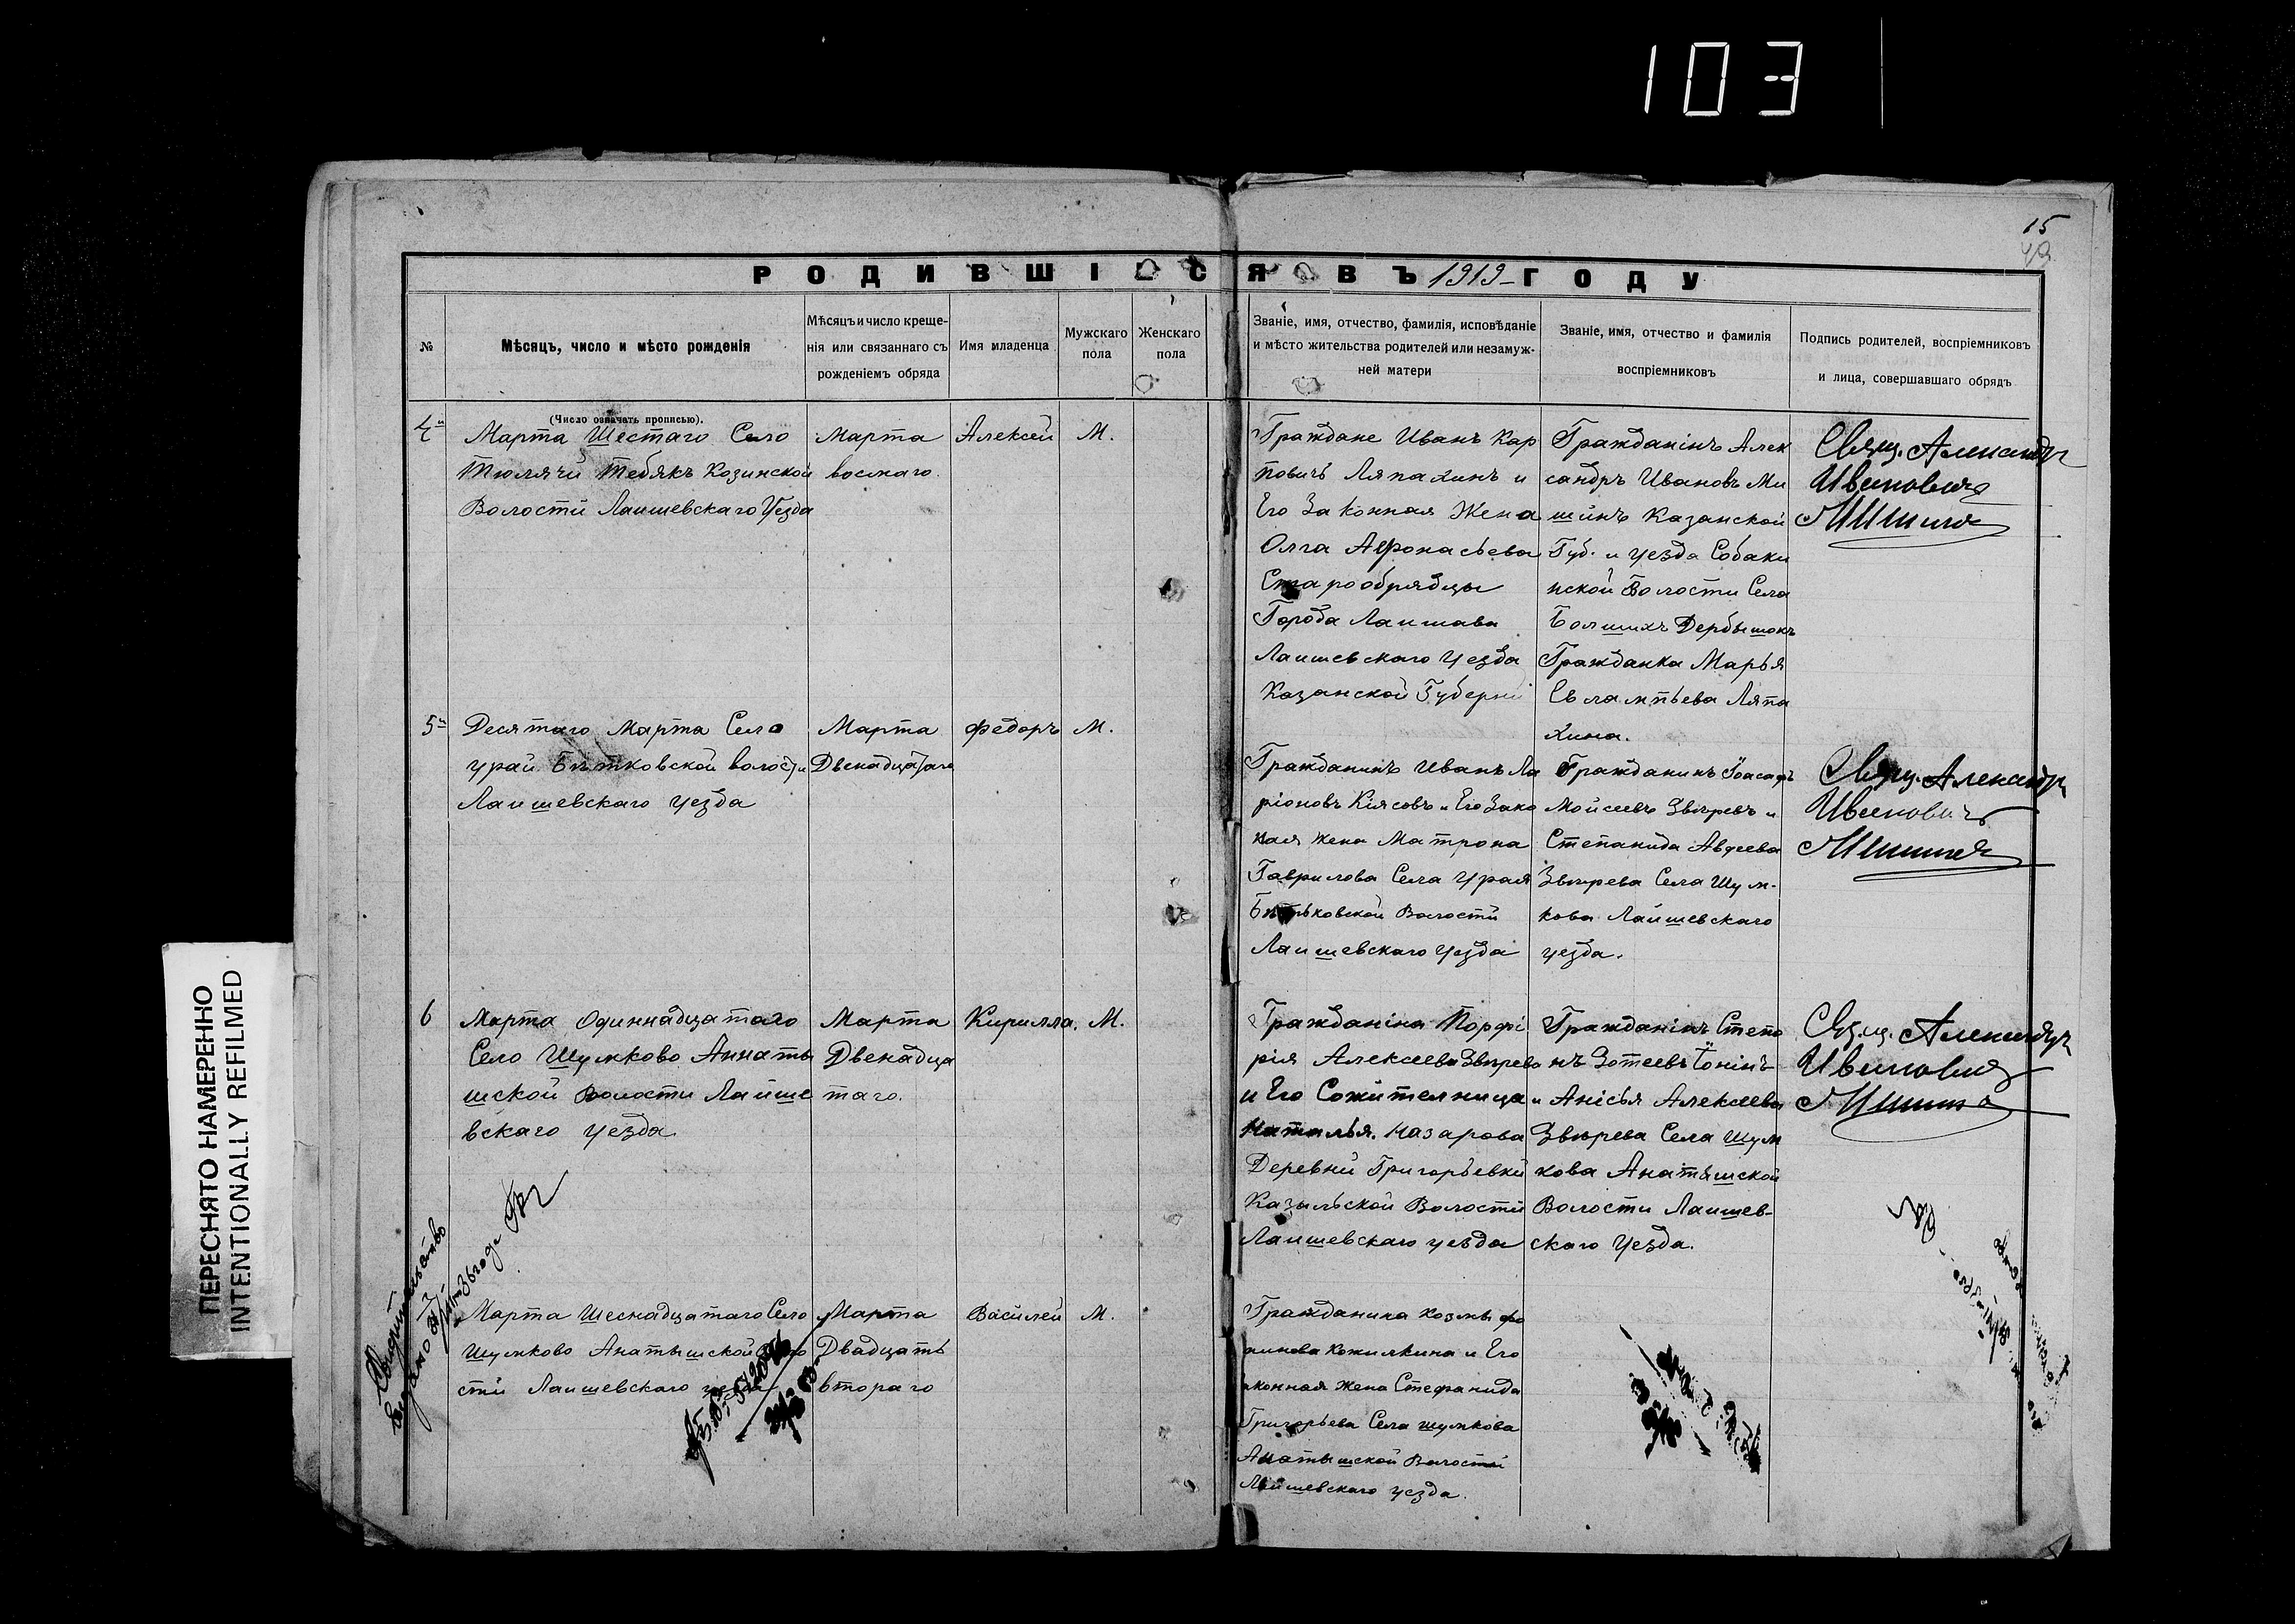 103
15
РОДИВШІЕСЯ ВЪ 1919 ГОДУ
№
Мѣсяцъ, число и мѣсто рожденія
Мѣсяцъ и число креще-
нія или связаннаго съ
рожденіемъ обряда
Имя младенца
Мужскаго
пола
Женскаго
пола
Званіе, имя, отчество, фамилія, исповѣданіе
и мѣсто жительства родителей или незамуж-
ней матери
Званіе, имя, отчество и фамилія
воспріемниковъ
Подпись родителей, воспріемниковъ
и лица, совершавшаго обрядъ
(Число означать прописью).
4й
Марта Шестаго Село
Тюлячи Тебякъ Козинской
Волости Лаишевскаго Уезда
Марта
восмаго.
Алексей
М.
Граждане Иванъ Кар
повичъ Ляпахинъ и
Его Законная Жена
Олга Афонасьева
Старообрядцы
Города Лаишава
Лаишевскаго Уезда
Казанской Губерни
Гражданінъ Алек
сандръ Ивановъ Ми
шинъ Казанской
Губ. и уезда Собаки
нской Волости Села
Болшихъ Дербышокъ
Гражданка Марья
Евлампьева Ляпа
хина.
Свящ. Александр
Иванович
Мишин
5й
Десятаго Марта Село
Урай Бѣтковской волости
Лаишевскаго Уезда
Марта
Двенадцатаго
Федоръ
М.
Гражданинъ Иванъ Ла
ріоновъ Кіясовъ и Его Зако
ная жена Матрона
Гаврилова Села Урая
Бѣтьковской Волости
Лаишевскаго Уезда
Гражданинъ Іоасафъ
Мойсеевъ Звѣревъ и
Степанида Авдеева
Звѣрева Села Шум-
кова Лаишевскаго
уезда.
Свящ. Александр
Иванович
Мишин
6
Марта Одиннадцатаго
Село Шумково Аннаты
шской Волости Лаише
вскаго Уезда.
Марта
Двенадца
таго.
Кирилла.
М.
Гражданіна Порфі
рія Алексеева Звѣрева
и Его Сожителница
Наталья. Назарова
Деревни Григорьевки
Казыльской Волости
Лаишевскаго уезда
Гражданінъ Степа
нъ Зотеевъ Іонінъ
и Анісья Алексеева
Звѣрева Села Шум
кова Анатышской
Волости Лаишев-
скаго Уезда.
Свящ. Александр
Иванович
Мишин
Марта Шеснадцатаго Село
Шумково Анатышской Воло
сти Лаишевскаго уезда
Марта
Двадцать
втораго
Василей
М.
Гражданина Козмы Фо
мнева Кожилкина и Его
аконная Жена Стефанида
Григорьева Села Шумкова
Анатышской Волости
Лаишевскаго уезда.
Выдано
ПЕРЕСНЯТО НАМЕРЕННО
INTENTIONALLY REFILMED